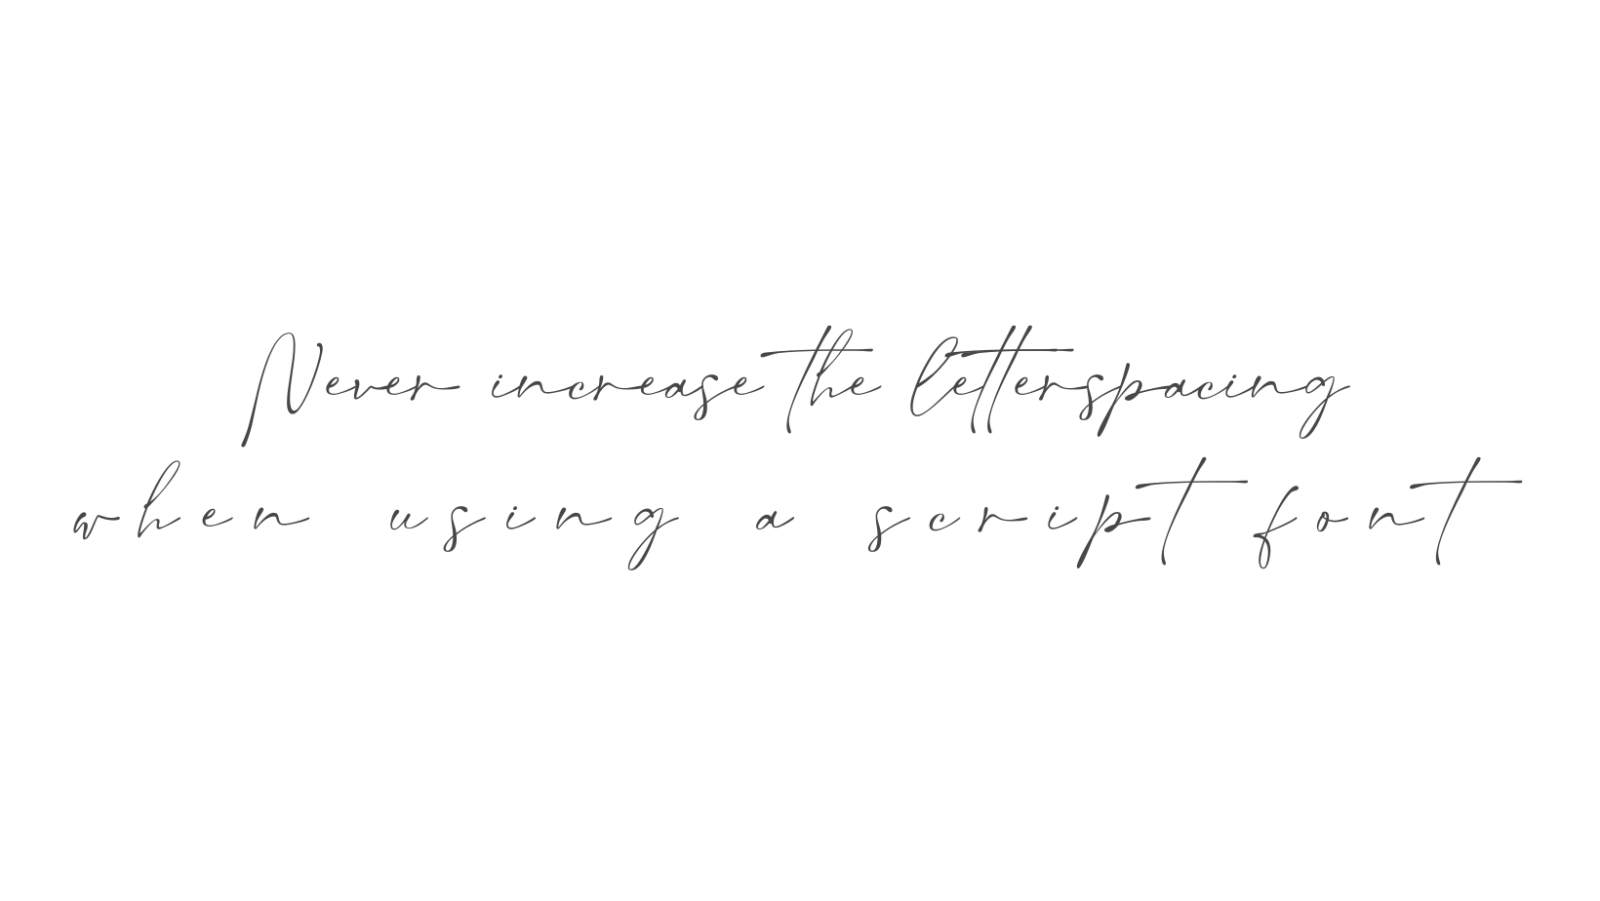 Never increase the letterspacing
when using a script font